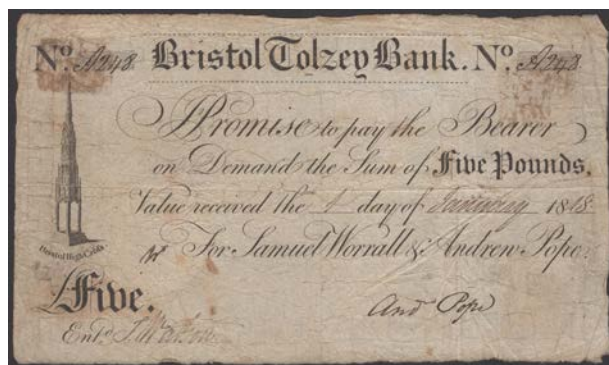 No. A248. Bristol Tolzey Bank. No. A248
I Promise to pay the Bearer
on Demand the Sum of Five Pounds,
Value received the 1 day of January 1818
For Samuel Worrall & Andrew Pope.
Bristol High Cross
Five.
And Pope
Entd.